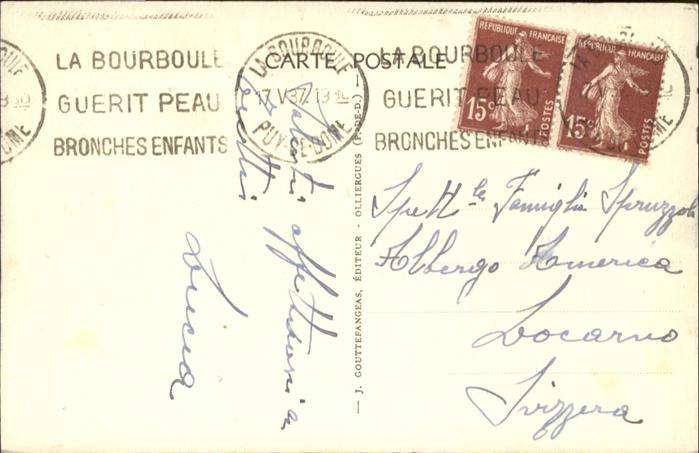 LA BOURBOULE
GUERIT PEAU
BRONCHES ENFANTS
LA BOURBOULE
17 V 37. 13
PUY-DE-DOME
CARTE POSTALE
LA BOURBOULE
GUERIT PEAU
BRONCHES ENFANTS
REPUBLIQUE FRANÇAISE
15c
POSTES
REPUBLIQUE FRANÇAISE
15c
POSTES
Saluti affettuosi a
tutti
Lucia
— J. GOUTTEFANGEAS, ÉDITEUR - OLLIERGUES (P.-DE-D.) —
Spett. le Famiglia Spruzzola
Albergo America
Locarno
Svizzera